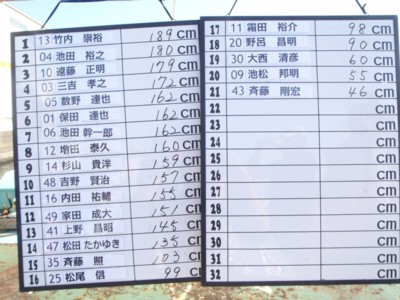 1 13 竹内 崇裕 189 cm
2 04 池田 裕之 180 cm
3 10 遠藤 正明 179 cm
4 03 三吉 孝之 172 cm
5 05 数野 達也 162 cm
6 01 保田 達也 162 cm
7 06 池田 幹一郎 162 cm
8 12 増田 泰久 160 cm
9 14 杉山 貴洋 159 cm
10 48 吉野 賢治 157 cm
11 16 内田 祐輔 155 cm
12 49 家田 成大 151 cm
13 41 上野 昌昭 145 cm
14 47 松田 たかゆき 135 cm
15 35 斉藤 照 103 cm
16 25 松尾 信 99 cm
17 11 霜田 裕介 98 cm
18 20 野呂 昌明 90 cm
19 30 大西 清彦 60 cm
20 09 池松 邦明 55 cm
21 43 斉藤 剛宏 46 cm
22 cm
23 cm
24 cm
25 cm
26 cm
27 cm
28 cm
29 cm
30 cm
31 cm
32 cm